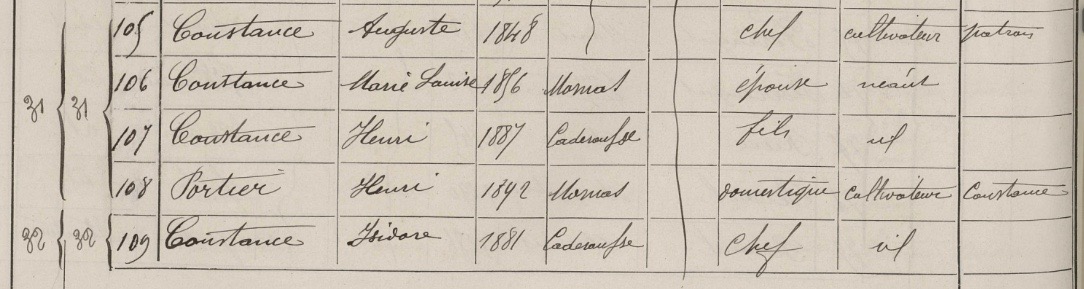 105 Constance Auguste 1848 chef cultivateur patron
31 31 106 Constance Marie Louise 1856 Mornas épouse néant
107 Constance Henri 1887 Caderousse fils id
108 Portier Henri 1892 Mornas domestique cultivateur Constance
32 32 109 Constance Isidore 1881 Caderousse chef id